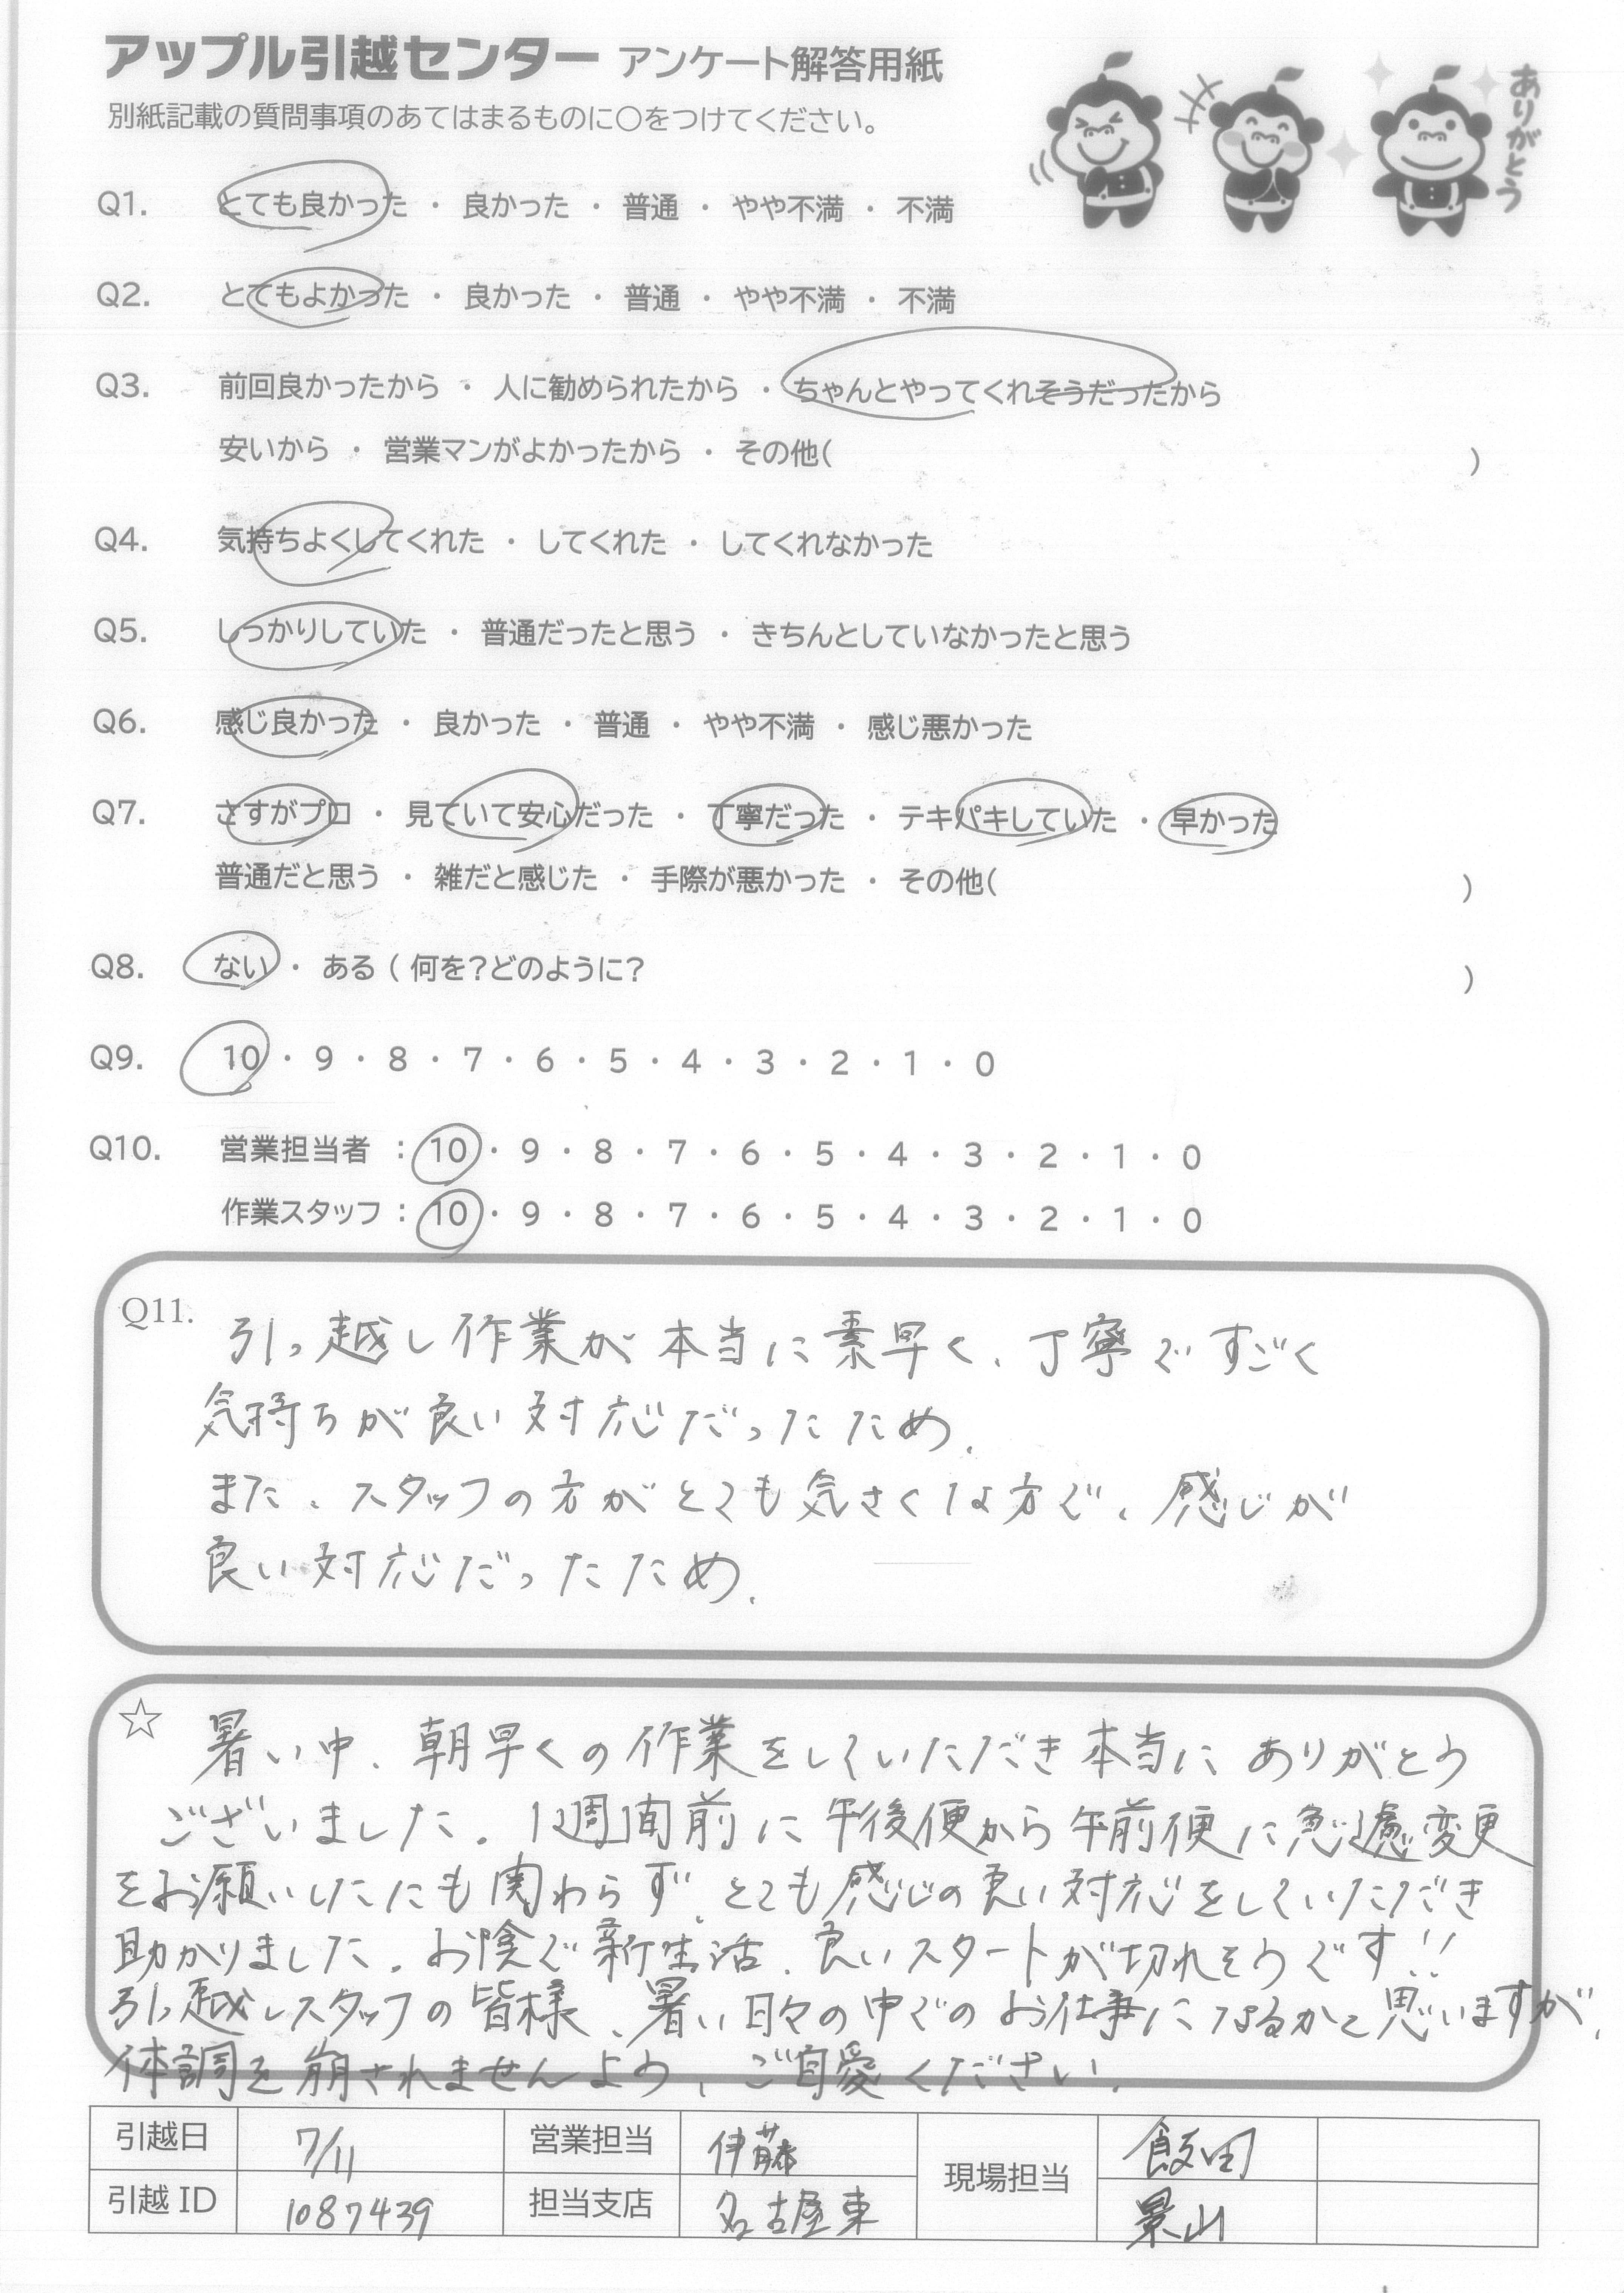 アップル引越センター アンケート解答用紙
別紙記載の質問事項のあてはまるものに〇をつけてください。
ありがとう
Q1. とても良かった ・ 良かった ・ 普通 ・ やや不満 ・ 不満
Q2. とてもよかった ・ 良かった ・ 普通 ・ やや不満 ・ 不満
Q3. 前回良かったから ・ 人に勧められたから ・ ちゃんとやってくれそうだったから
安いから ・ 営業マンがよかったから ・ その他( )
Q4. 気持ちよくしてくれた ・ してくれた ・ してくれなかった
Q5. しっかりしていた ・ 普通だったと思う ・ きちんとしていなかったと思う
Q6. 感じ良かった ・ 良かった ・ 普通 ・ やや不満 ・ 感じ悪かった
Q7. さすがプロ ・ 見ていて安心だった ・ 丁寧だった ・ テキパキしていた ・ 早かった
普通だと思う ・ 雑だと感じた ・ 手際が悪かった ・ その他( )
Q8. ない ・ ある ( 何を?どのように? )
Q9. 10 ・ 9 ・ 8 ・ 7 ・ 6 ・ 5 ・ 4 ・ 3 ・ 2 ・ 1 ・ 0
Q10. 営業担当者 : 10 ・ 9 ・ 8 ・ 7 ・ 6 ・ 5 ・ 4 ・ 3 ・ 2 ・ 1 ・ 0
作業スタッフ : 10 ・ 9 ・ 8 ・ 7 ・ 6 ・ 5 ・ 4 ・ 3 ・ 2 ・ 1 ・ 0
Q11. 引っ越し作業が本当に素早く、丁寧ですごく
気持ちが良い対応だったため、
また、スタッフの方がとても気さくな方で、感じが
良い対応だったため、
☆ 暑い中、朝早くの作業をしていただき本当にありがとう
ございました。1週間前に午後便から午前便に急遽変更
をお願いしたにも関わらず、とても感じの良い対応をしていただき
助かりました。お陰で新生活、良いスタートが切れそうです!!
引っ越しスタッフの皆様、暑い日々の中でのお仕事になるかと思いますが、
体調を崩されませんよう、ご自愛ください。
引越日 7/11 営業担当 伊藤 現場担当 飯田
引越 ID 1087439 担当支店 名古屋東 景山